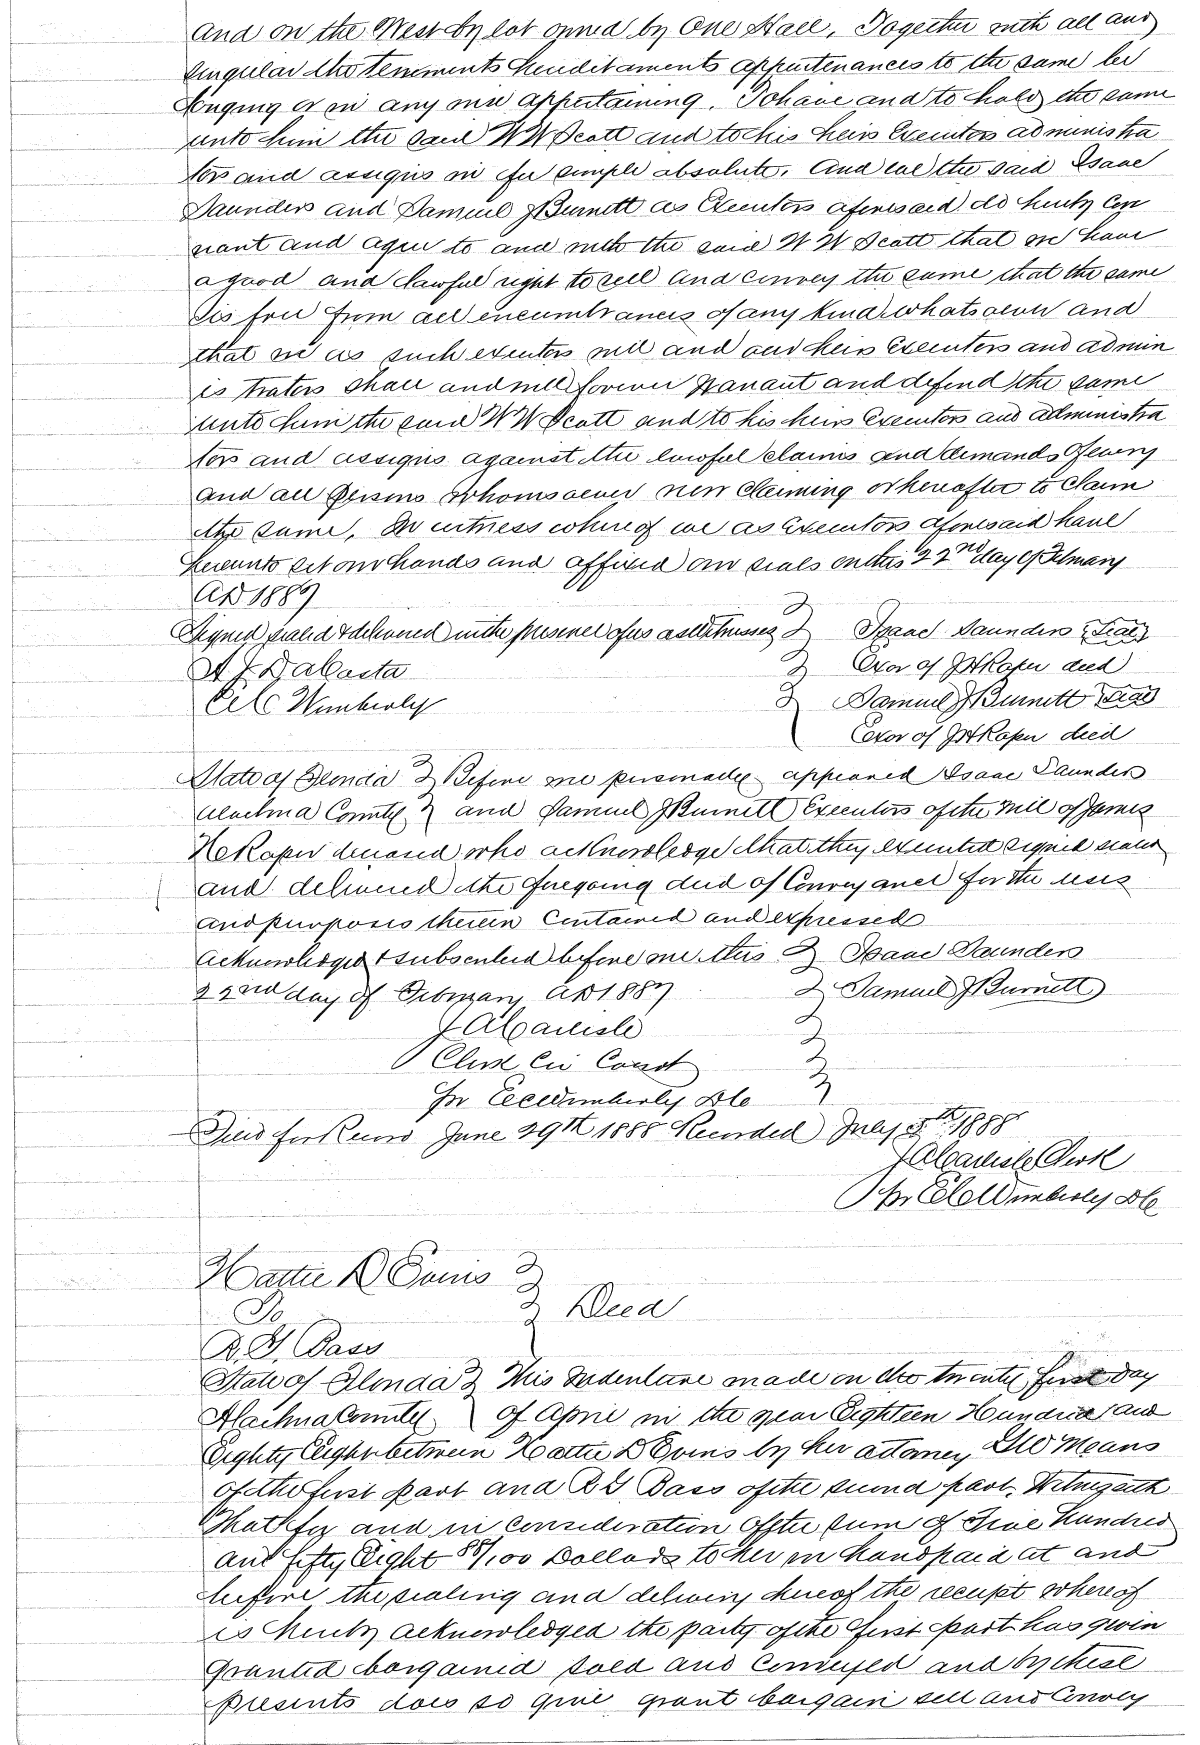 and on the West by lot owned by One Hall, Together with all and
singular the tenements hereditaments appurtenances to the same be
longing or in any wise appertaining. To have and to hold the same
unto him the said W W Scott and to his heirs Executors administra
tors and assigns in fee simple absolute. And we the said Isaac
Saunders and Samuel J Burnett as Executors aforesaid do hereby cov
nant and agree to and with the said W W Scott that we have
a good and lawful right to sell and convey the same that the same
is free from all encumbrances of any kind whatsoever and
that we as such executors will and our heirs Executors and admin
istrators shall and will forever Warrant and defend the same
unto him the said W W Scott and to his heirs Executors and administra
tors and assigns against the lawful claims and demands of every
and all persons whomsoever now claiming or hereafter to claim
the same, In witness whereof we as Executors aforesaid have
hereunto set our hands and affixed our seals on this 22nd day of February
AD 1887
Signed sealed & delivered in the presence of us as Witnesses } Isaac Saunders (Seal)
A J DaCosta } Exor of J H Roper decd
C C Wimberly } Samuel J Burnett (Seal)
Exor of J H Roper decd
State of Florida } Before me personally appeared Isaac Saunders
Alachua County } and Samuel J Burnett Executors of the will of James
H Roper deceased who acknowledge that they executed signed sealed
and delivered the foregoing deed of Conveyance for the uses
and purposes therein contained and expressed
Acknowledged & subscribed before me this } Isaac Saunders
22nd day of February AD 1887 } Samuel J Burnett
J A Carlisle
Clerk Cir Court
Pr C C Wimberly D C
Filed for Record June 29th 1888 Recorded July 5th 1888
J A Carlisle Clerk
Pr C C Wimberly D C
Hattie D Evins }
To } Deed
R. G. Bass
State of Florida } This Indenture made on the twenty first day
Alachua County } of April in the year Eighteen Hundred and
Eighty Eight between Hattie D Evins by her attorney G W Means
of the first part and R G Bass of the second part, Witnesseth
That for and in consideration of the sum of Five Hundred
and fifty Eight 88/100 Dollars to her in hand paid at and
before the sealing and delivery hereof the receipt whereof
is hereby acknowledged the party of the first part has given
granted bargained sold and conveyed and by these
presents does so give grant bargain sell and Convey